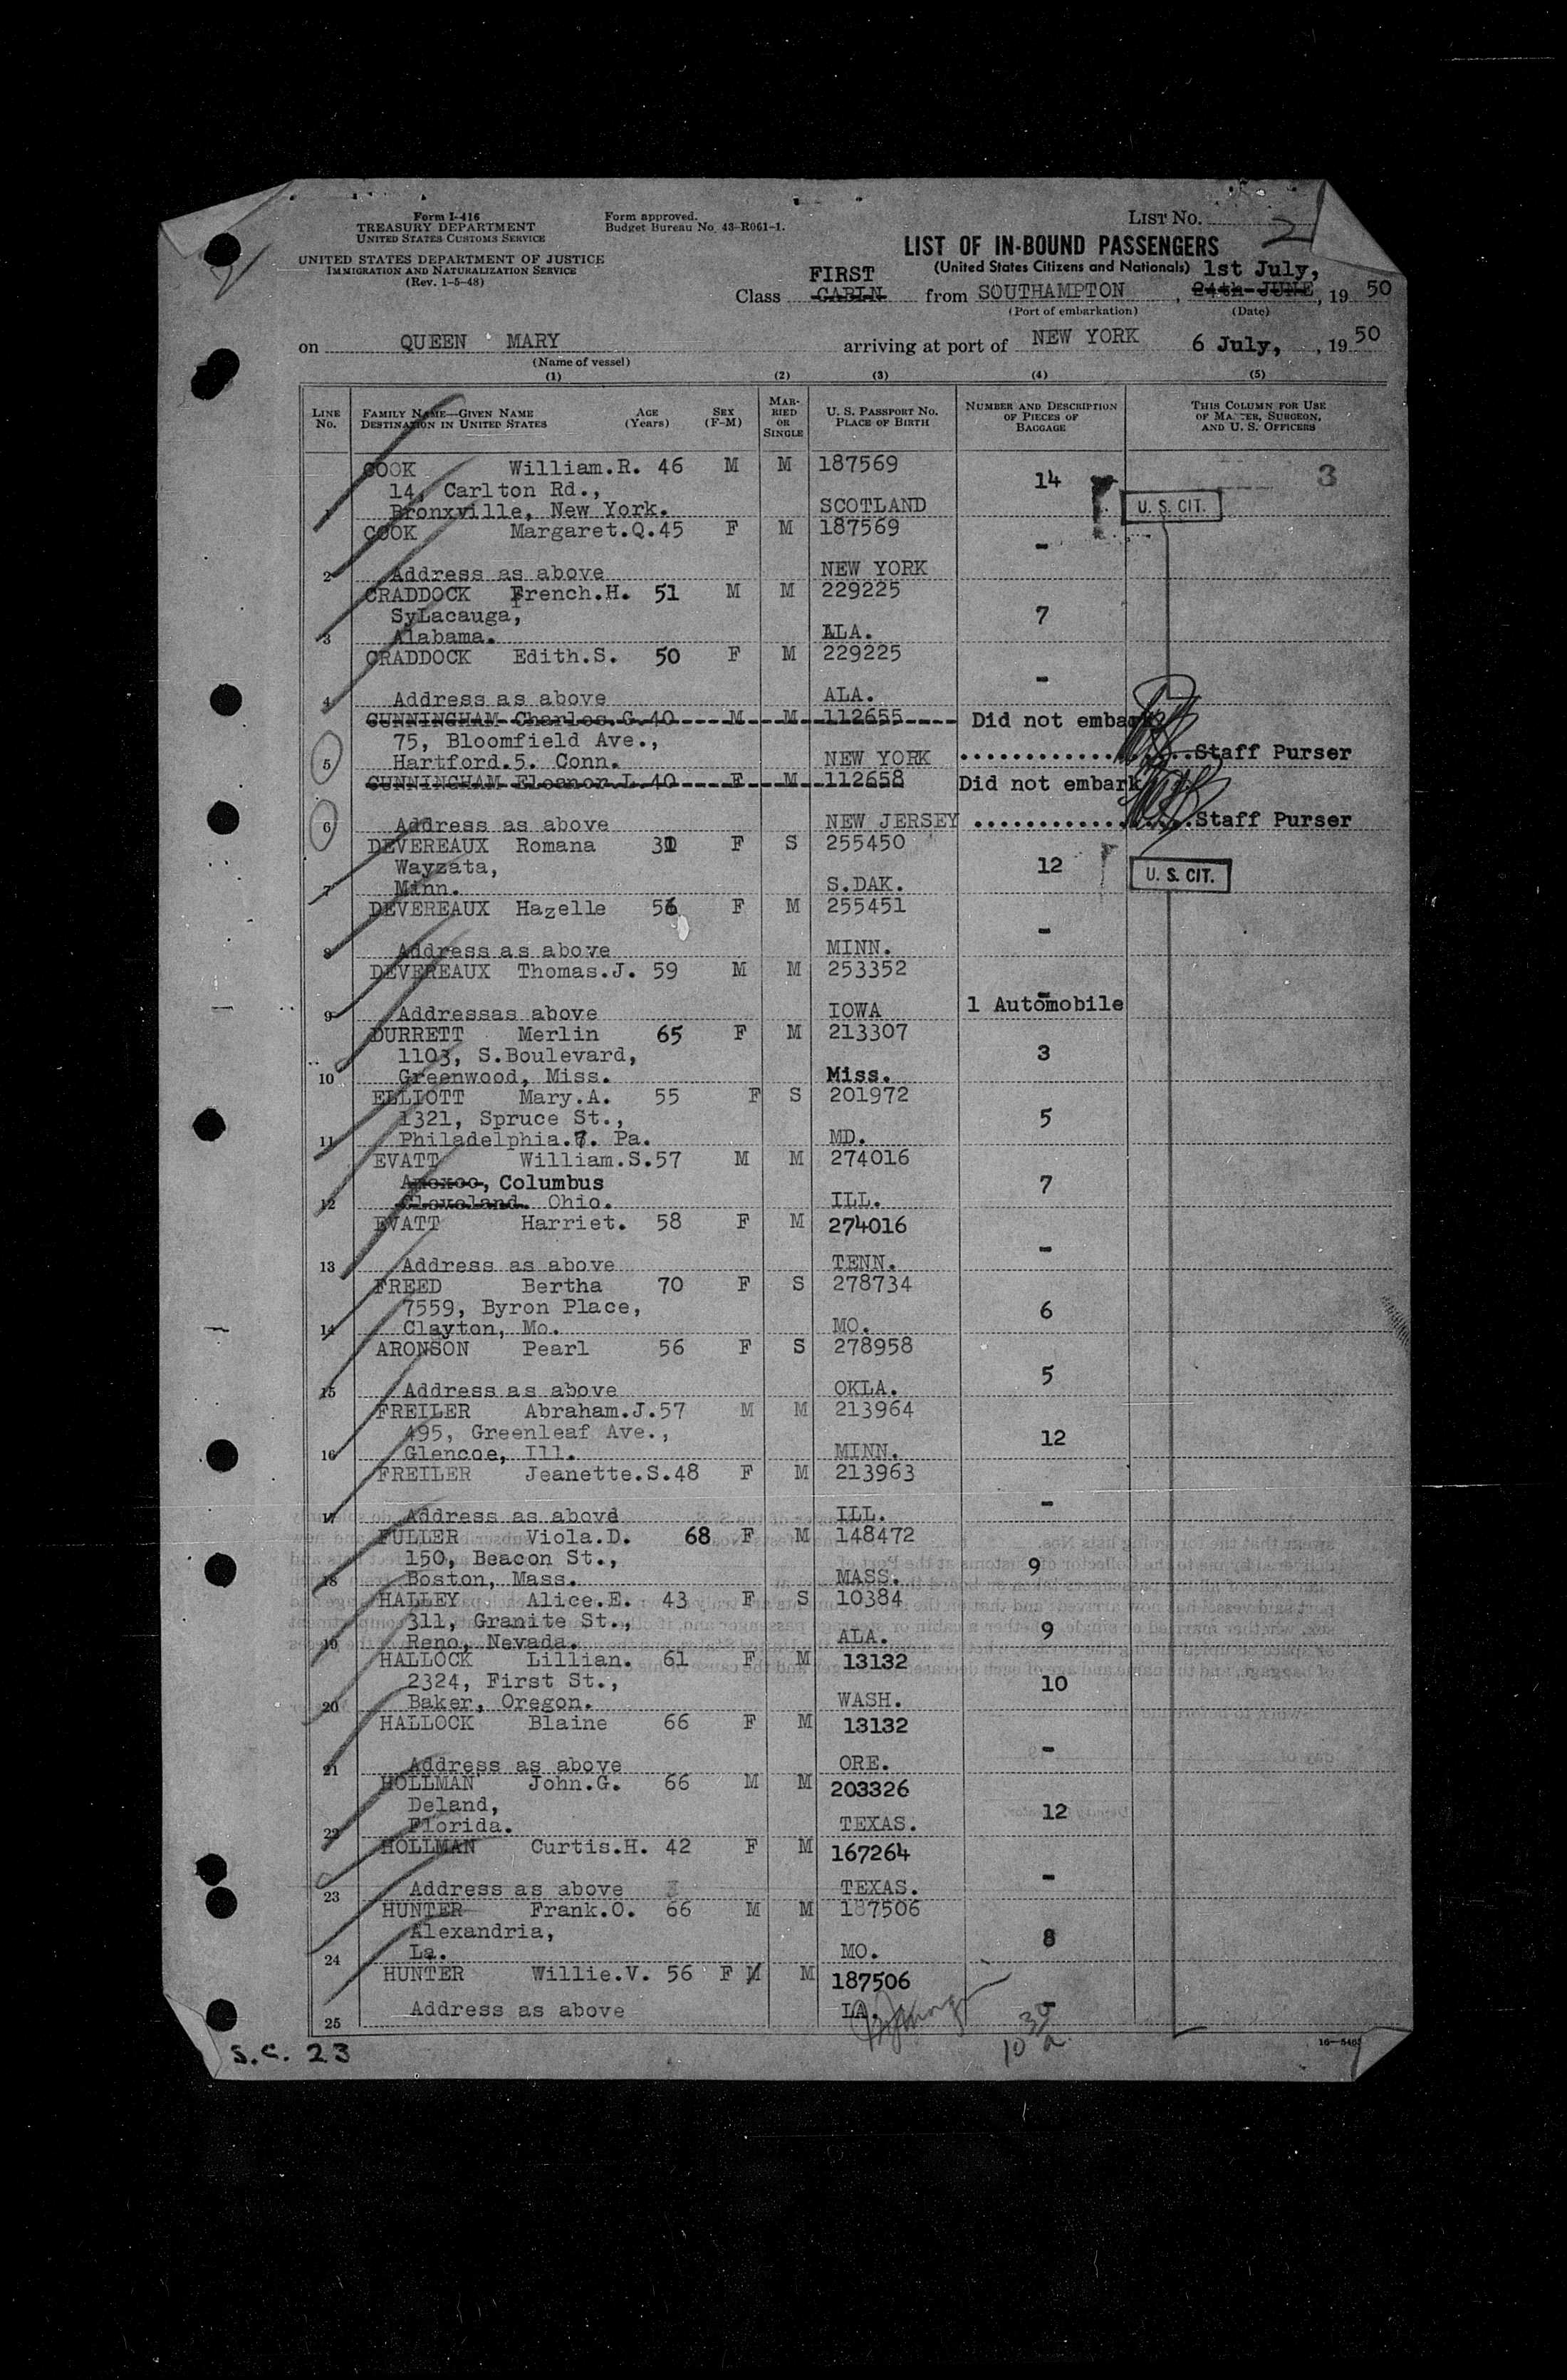 Form I-416
TREASURY DEPARTMENT
UNITED STATES CUSTOMS SERVICE
UNITED STATES DEPARTMENT OF JUSTICE
IMMIGRATION AND NATURALIZATION SERVICE
(Rev. 1-5-48)
Form approved.
Budget Bureau No. 43-R061-1.
LIST No. 21
LIST OF IN-BOUND PASSENGERS
(United States Citizens and Nationals)
FIRST 1st July,
Class CABIN from SOUTHAMPTON, 24th JUNE, 1950
(Port of embarkation) (Date)
on QUEEN MARY arriving at port of NEW YORK 6 July, , 1950
(Name of vessel)
(1) (2) (3) (4) (5)
LINE No. FAMILY NAME—GIVEN NAME DESTINATION IN UNITED STATES AGE (Years) SEX (F-M) MARRIED OR SINGLE U. S. PASSPORT No. PLACE OF BIRTH NUMBER AND DESCRIPTION OF PIECES OF BAGGAGE THIS COLUMN FOR USE OF MASTER, SURGEON, AND U. S. OFFICERS
COOK William.R. 46 M M 187569
14, Carlton Rd., 14 3
1 Bronxville, New York. SCOTLAND U. S. CIT.
COOK Margaret.Q.45 F M 187569
-
2 Address as above NEW YORK
CRADDOCK French.H. 51 M M 229225
SyLacauga, 7
3 Alabama. ALA.
CRADDOCK Edith.S. 50 F M 229225
-
4 Address as above ALA.
CUNNINGHAM Charles.G.40 M M 112655 Did not embark
75, Bloomfield Ave.,
5 Hartford.5. Conn. NEW YORK Staff Purser
CUNNINGHAM Eleanor.L.40 F M 112658 Did not embark
6 Address as above NEW JERSEY Staff Purser
DEVEREAUX Romana 31 F S 255450
Wayzata, 12
7 Minn. S.DAK. U. S. CIT.
DEVEREAUX Hazelle 56 F M 255451
-
8 Address as above MINN.
DEVEREAUX Thomas.J. 59 M M 253352
-
9 Addressas above IOWA 1 Automobile
DURRETT Merlin 65 F M 213307
1103, S.Boulevard, 3
10 Greenwood, Miss. Miss.
ELLIOTT Mary.A. 55 F S 201972
1321, Spruce St., 5
11 Philadelphia.7. Pa. MD.
EVATT William.S.57 M M 274016
, Columbus 7
12 Cleveland. Ohio. ILL.
EVATT Harriet. 58 F M 274016
-
13 Address as above TENN.
FREED Bertha 70 F S 278734
7559, Byron Place, 6
14 Clayton, Mo. MO.
ARONSON Pearl 56 F S 278958
5
15 Address as above OKLA.
FREILER Abraham.J.57 M M 213964
495, Greenleaf Ave., 12
16 Glencoe, Ill. MINN.
FREILER Jeanette.S.48 F M 213963
-
17 Address as above ILL.
FULLER Viola.D. 68 F M 148472
150, Beacon St., 9
18 Boston, Mass. MASS.
HALLEY Alice.E. 43 F S 10384
311, Granite St., 9
19 Reno, Nevada. ALA.
HALLOCK Lillian. 61 F M 13132
2324, First St., 10
20 Baker, Oregon. WASH.
HALLOCK Blaine 66 F M 13132
-
21 Address as above ORE.
HOLLMAN John.G. 66 M M 203326
Deland, 12
22 Florida. TEXAS.
HOLLMAN Curtis.H. 42 F M 167264
-
23 Address as above TEXAS.
HUNTER Frank.O. 66 M M 187506
Alexandria, 8
24 La. MO.
HUNTER Willie.V. 56 F M M 187506
-
25 Address as above LA.
S.C. 23